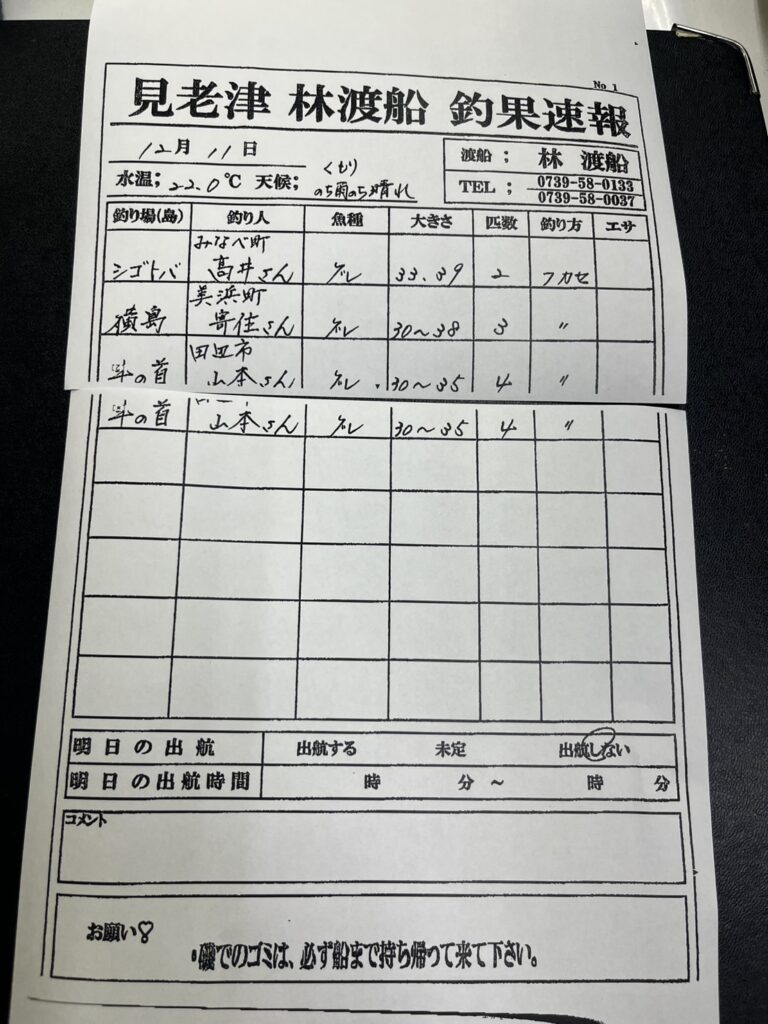 No 1
見老津 林渡船 釣果速報
12月 11日
水温; 22.0℃ 天候; くもりのち雨のち晴れ
渡船; 林 渡船
TEL; 0739-58-0133
0739-58-0037
釣り場(島) 釣り人 魚種 大きさ 匹数 釣り方 エサ
シゴトバ みなべ町 高井さん グレ 33.39 2 フカセ
横島 美浜町 寄住さん グレ 30〜38 3 〃
の首 田辺市 山本さん グレ 30〜35 4 〃
の首 山本さん グレ 30〜35 4 〃
明日の出航 出航する 未定 出航しない
明日の出航時間 時 分〜 時 分
コメント
お願い♡
・磯でのゴミは、必ず船まで持ち帰って来て下さい。